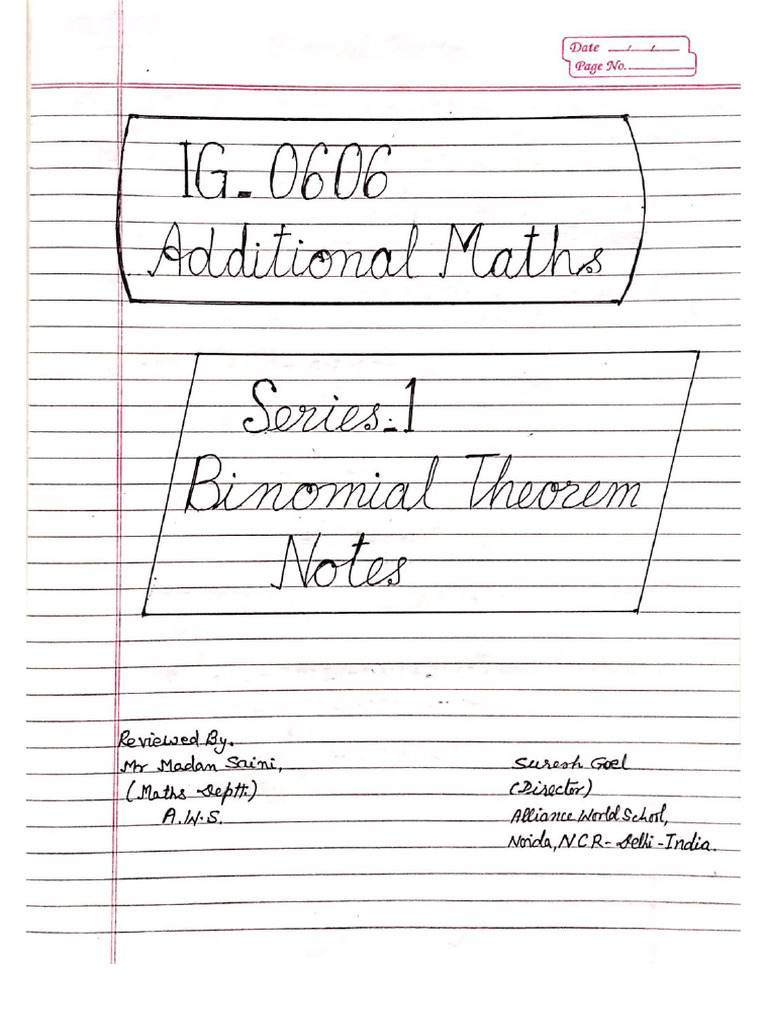 Date __/__/__
Page No.______
IG-0606
Additional Maths
Series-1
Binomial Theorem
Notes
Reviewed By.
Mr Madan Saini,
(Maths Deptt.)
A.W.S.
Suresh Goel
(Director)
Alliance World School,
Noida, NCR-Delhi-India.